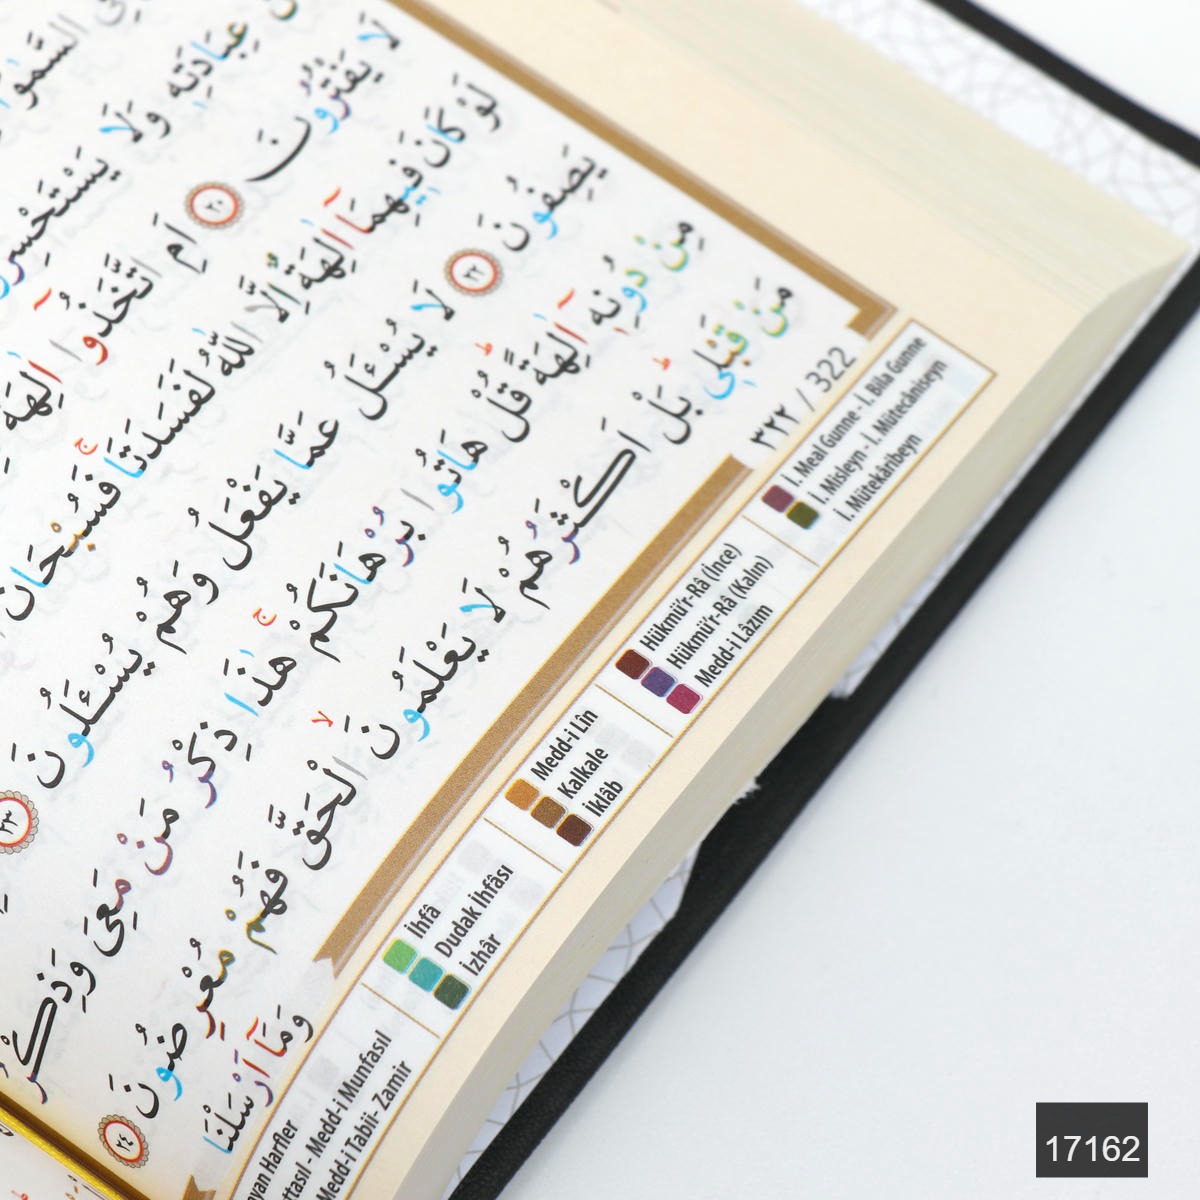 عِبَادَتِهِ وَلَا يَسْتَحْسِرُ
لَا يَفْتُرُونَ ﴿٢٠﴾ اَمِ اتَّخَذُوا اٰلِهَةً
لَوْ كَانَ فِيهِمَا اٰلِهَةٌ اِلَّا اللّٰهُ لَفَسَدَتَا فَسُبْحَانَ
يَصِفُونَ ﴿٢٢﴾ لَا يُسْـَٔلُ عَمَّا يَفْعَلُ وَهُمْ يُسْـَٔلُونَ ﴿٢٣﴾
مِنْ دُونِهٖ اٰلِهَةً قُلْ هَاتُوا بُرْهَانَكُمْ هٰذَا ذِكْرُ مَنْ مَعِيَ وَذِكْرُ
مَنْ قَبْلِي بَلْ اَكْثَرُهُمْ لَا يَعْلَمُونَ الْحَقَّ فَهُمْ مُعْرِضُونَ ﴿٢٤﴾
وَمَا اَرْسَلْنَا
٣٢٢ / 322
İ. Meal Gunne - İ. Bila Gunne
İ. Misleyn - İ. Mütecâniseyn
İ. Mütekâribeyn
Hükmü'r-Râ (İnce)
Hükmü'r-Râ (Kalın)
Medd-i Lâzım
Medd-i Lîn
Kalkale
İklâb
İhfâ
Dudak İhfâsı
İzhâr
Harfler
Medd-i Munfasıl
Medd-i Tabii- Zamir
17162